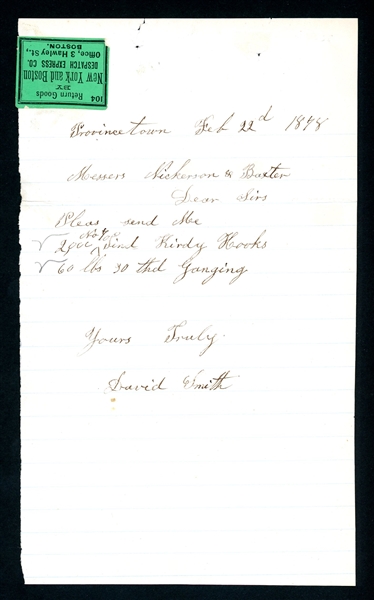 104
Return Goods
BY
New York and Boston
DESPATCH EXPRESS CO.
Office, 3 Hawley St.,
BOSTON.
Provincetown Feb 22d 1878
Messers Nickerson & Baxter
Dear Sirs
Pleas send Me
No 4
Tind Kirby Hooks
60 lbs 30 thd Ganging
Yours Truly
David Smith